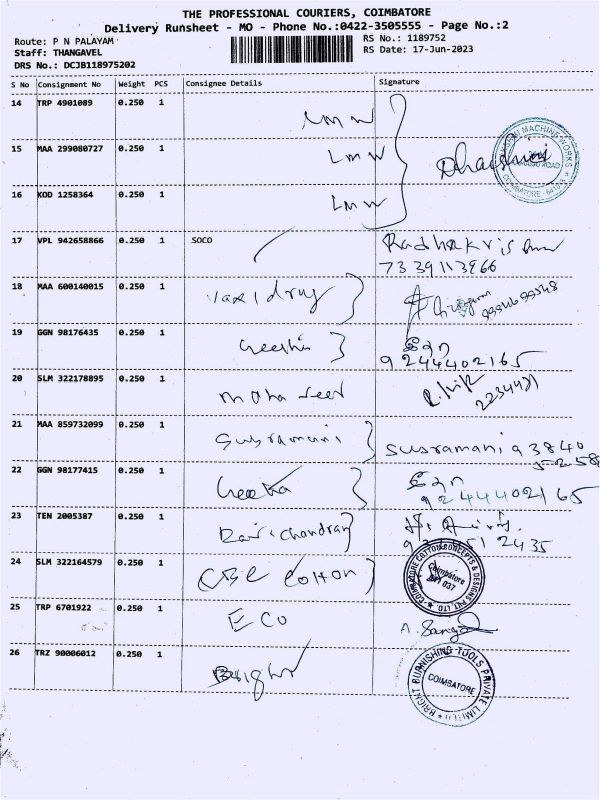 THE PROFESSIONAL COURIERS, COIMBATORE
Delivery Runsheet - MO - Phone No.:0422-3505555 - Page No.:2
Route: P N PALAYAM
RS No.: 1189752
Staff: THANGAVEL
RS Date: 17-Jun-2023
DRS No.: DCJB118975202
S No Consignment No Weight PCS Consignee Details Signature
14 TRP 4901089 0.250 1 LMW
15 MAA 299080727 0.250 1 LMW
MACHINE WORKS
COIMBATORE
16 KOD 1258364 0.250 1 LMW
17 VPL 942658866 0.250 1 SOCO Radhakrishnan
7339113966
18 MAA 600140015 0.250 1
19 GGN 98176435 0.250 1 Geetha
9244402165
20 SLM 322178895 0.250 1 2234471
21 MAA 859732099 0.250 1 Susramani Susramani 93840
22 GGN 98177415 0.250 1 Geetha
9244402165
23 TEN 2005387 0.250 1 Ravichandran
24 SLM 322164579 0.250 1 CBE Cotton
COIMBATORE COTTON CONCEPTS & DESIGNS PVT. LTD.
Coimbatore
641 037
25 TRP 6701922 0.250 1 ECO A. Sanga
26 TRZ 90006012 0.250 1 Bright
BRIGHT BURNISHING TOOLS PRIVATE LIMITED
COIMBATORE